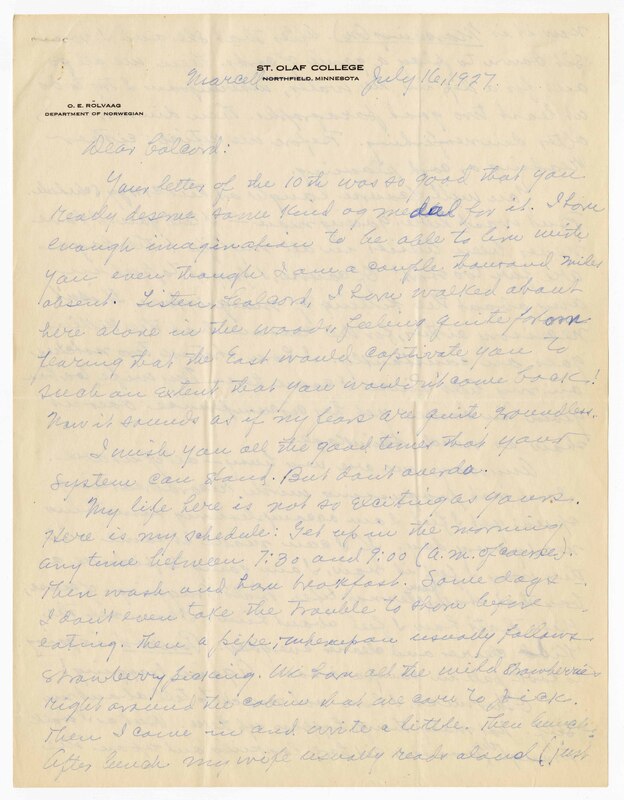 ST. OLAF COLLEGE
NORTHFIELD, MINNESOTA
Marcell July 16, 1927.
O. E. RÖLVAAG
DEPARTMENT OF NORWEGIAN
Dear Colcord:
Your letter of the 10th was so good that you
really deserve some kind og medal for it. I have
enough imagination to be able to live with
you even though I am a couple thousand miles
absent. Listen, Colcord, I have walked about
here alone in the woods, feeling quite forlorn
fearing that the East would captivate you to
such an extent that you wouldn't come back!
Now it sounds as if my fears are quite groundless.
I wish you all the good times that your
system can stand. But don't overdo.
My life here is not so exciting as yours.
Here is my schedule: Get up in the morning
anytime between 7:30 and 9:00 (a.m. of course).
Then wash and have breakfast. Some days
I don't even take the trouble to shave before
eating. Then a pipe, whereupon usually follows
strawberry picking. We have all the wild strawberries
right around the cabin that we care to pick.
Then I come in and write a little. Then lunch.
After lunch my wife usually reads aloud (just